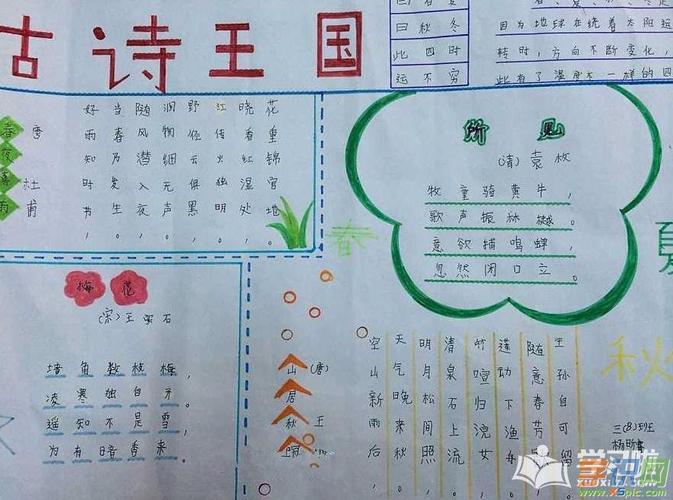 古诗王国
曰秋冬
此四时
运不穷
因为地球在绕着太阳运
转时，方向不断变化，
此有了温度不一样的四
春夜喜雨
唐 杜甫
好雨知时节，
当春乃发生。
随风潜入夜，
润物细无声。
野径云俱黑，
江船火独明。
晓看红湿处，
花重锦官地。
所见
(清)袁枚
牧童骑黄牛，
歌声振林樾。
意欲捕鸣蝉，
忽然闭口立。
春
夏
秋
梅花
(宋)王安石
墙角数枝梅，
凌寒独自开。
遥知不是雪，
为有暗香来。
山居秋暝
(唐)王
空山新雨后，
天气晚来秋。
明月松间照，
清泉石上流。
竹喧归浣女，
莲动下渔舟。
随意春芳歇，
王孙自可留。
三(8)班
www.x5pic.com